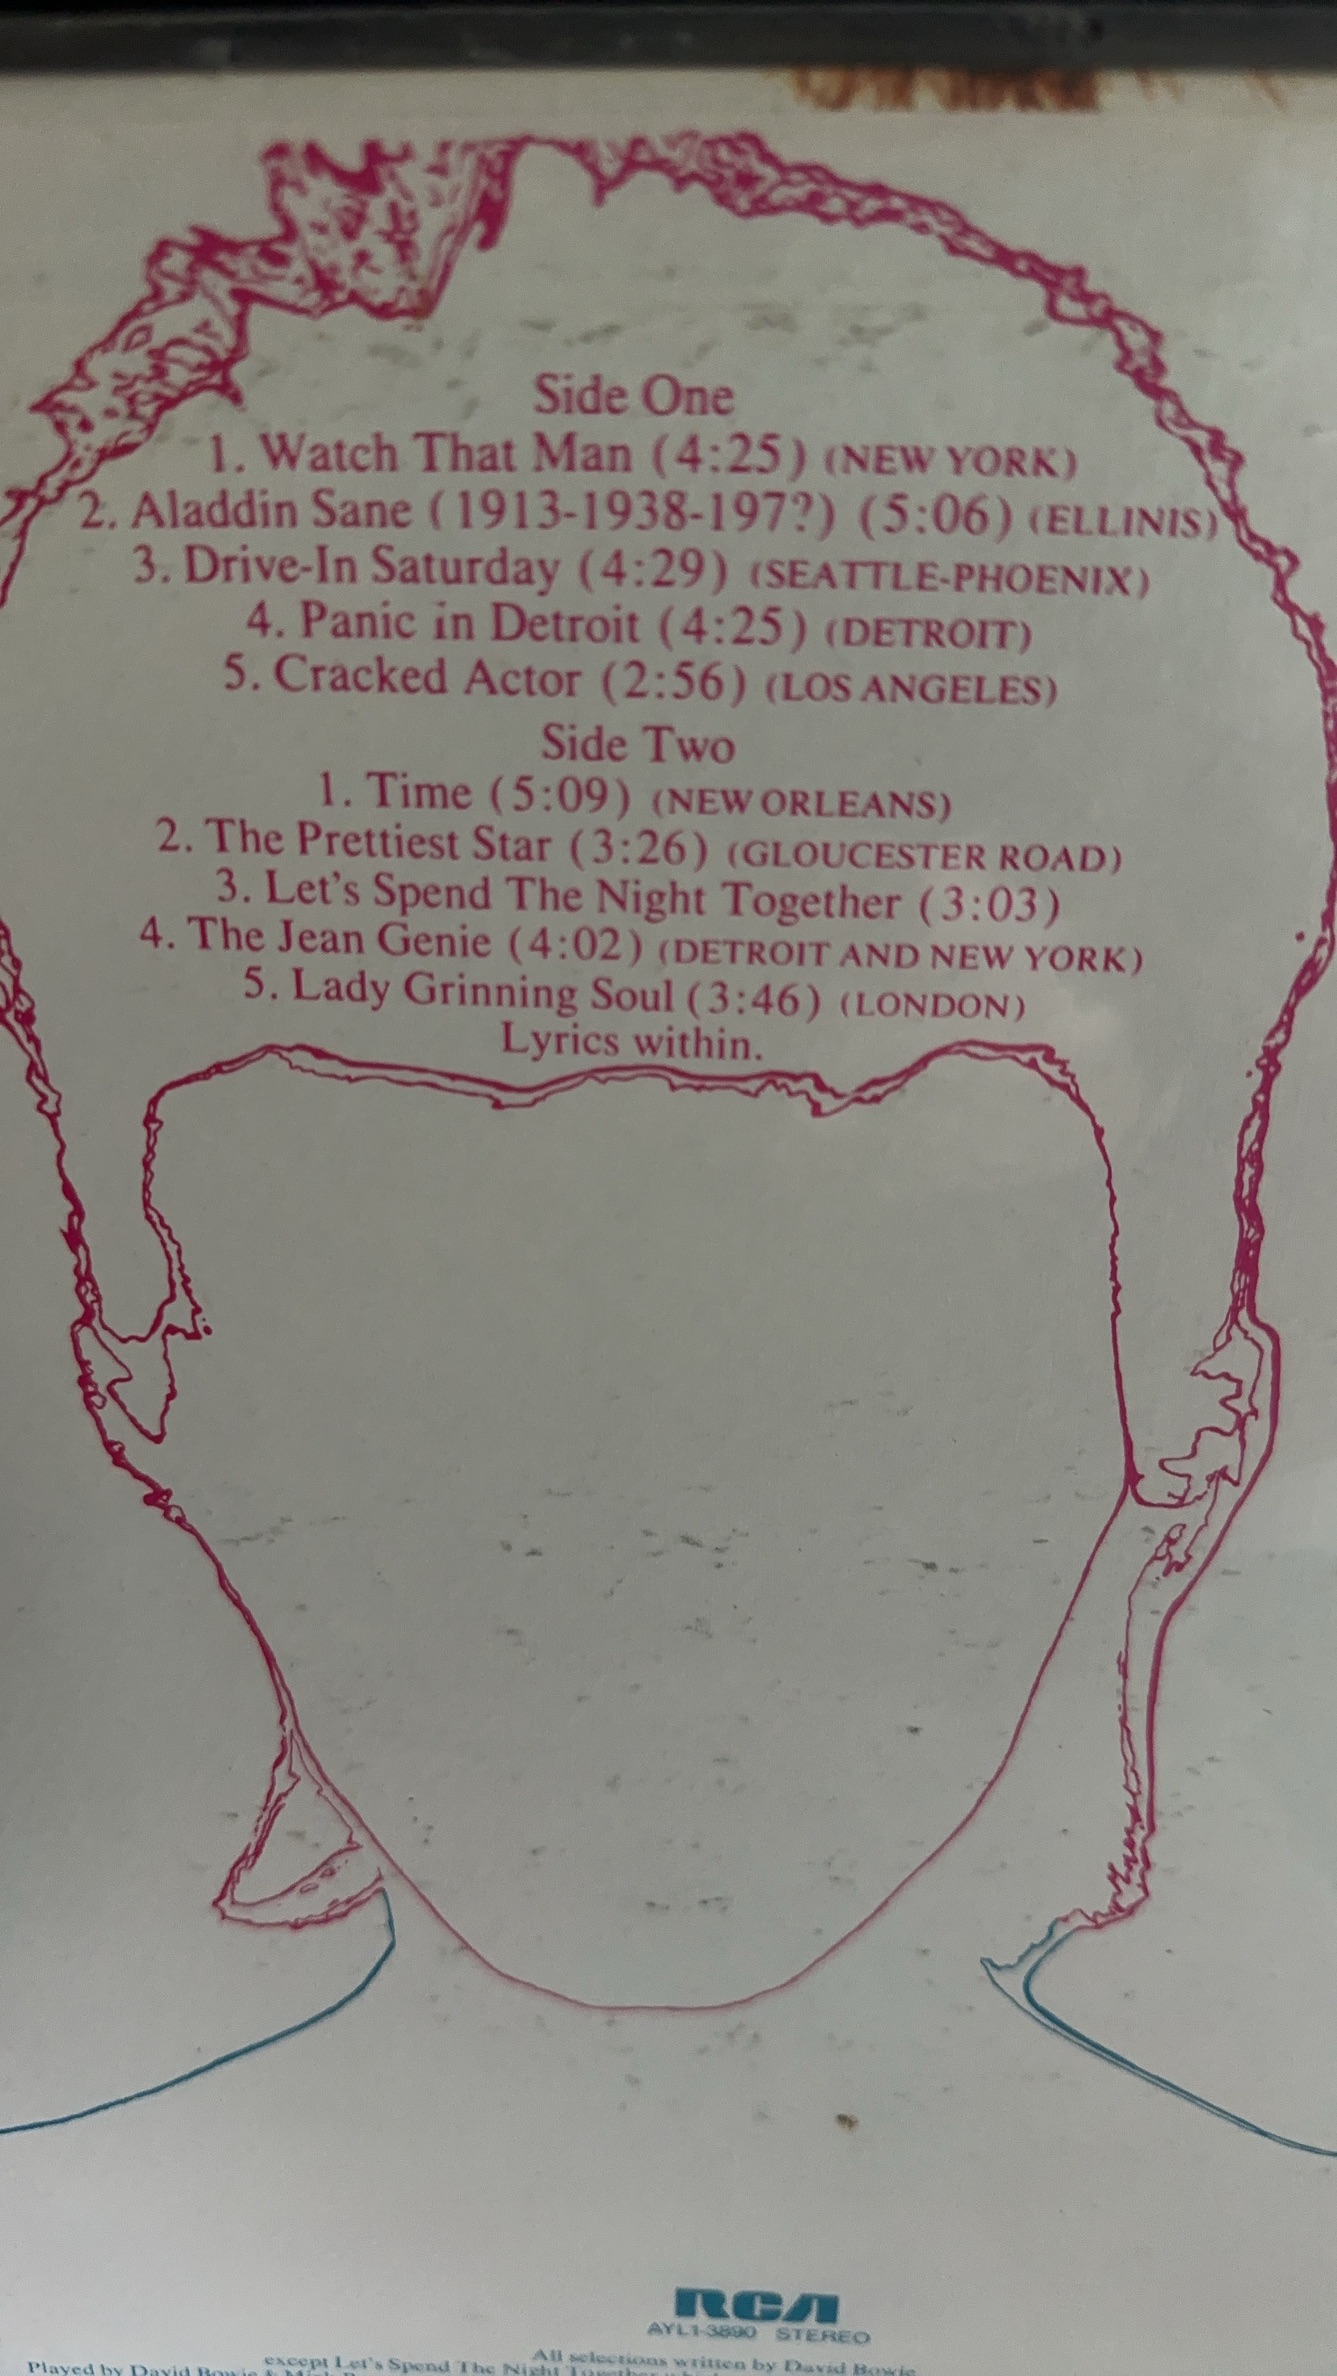 Side One
1. Watch That Man (4:25) (NEW YORK)
2. Aladdin Sane (1913-1938-197?) (5:06) (ELLINIS)
3. Drive-In Saturday (4:29) (SEATTLE-PHOENIX)
4. Panic in Detroit (4:25) (DETROIT)
5. Cracked Actor (2:56) (LOS ANGELES)
Side Two
1. Time (5:09) (NEW ORLEANS)
2. The Prettiest Star (3:26) (GLOUCESTER ROAD)
3. Let's Spend The Night Together (3:03)
4. The Jean Genie (4:02) (DETROIT AND NEW YORK)
5. Lady Grinning Soul (3:46) (LONDON)
Lyrics within.
RCA
AYL1-3890 STEREO
All selections written by David Bowie
except Let's Spend The Night Together
Played by David Bowie